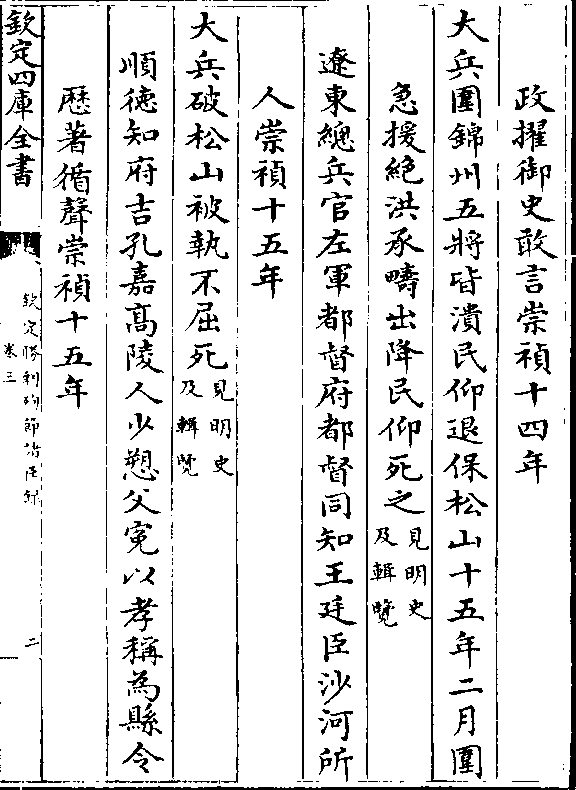 政擢御史敢言崇禎十四年
大兵圍錦州五將皆潰民仰退保松山十五年二月圍
急援絶洪承疇出降民仰死之見明史
及輯覽
遼東總兵官左軍都督府都督同知王廷臣沙河所
人崇禎十五年
大兵破松山被執不屈死見明史
及輯覽
順德知府吉孔嘉髙陵人少愬父寃以孝稱為縣令
歴著循聲崇禎十五年
欽定四庫全書
欽定勝朝殉節諸臣録
卷三
二